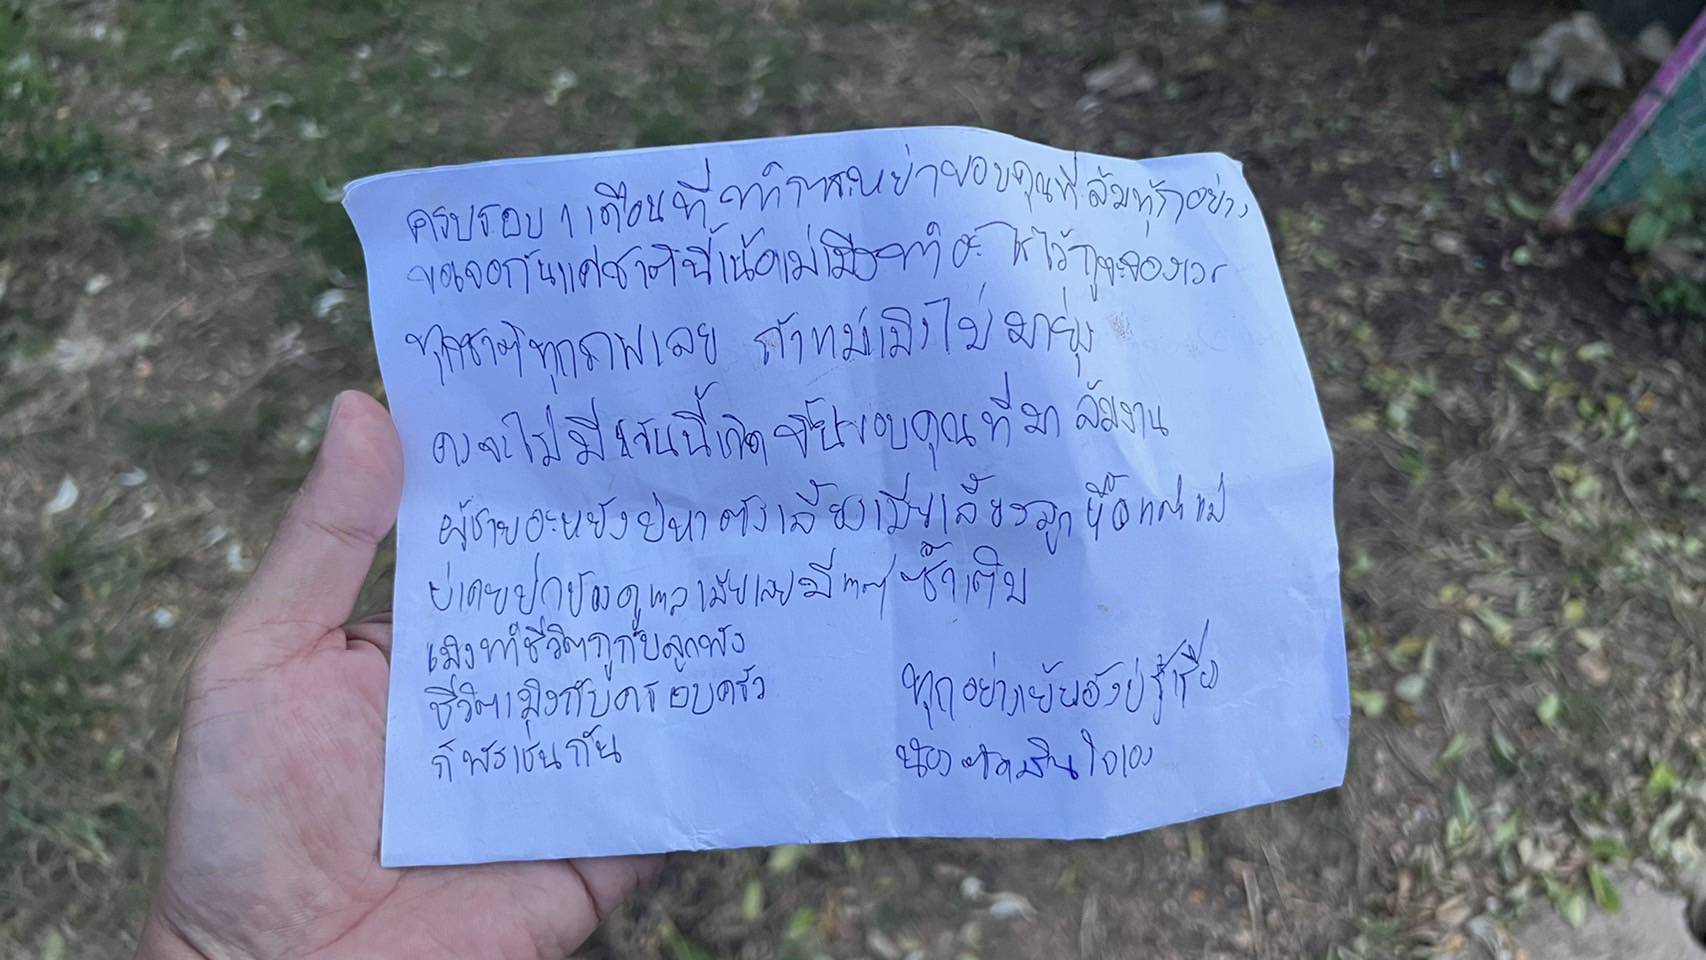 ครบรอบ 1 เดือนที่ ทำการะหย่าขอบคุณที่ล้มทุกอย่าง
ขอเจอกันแค่ชาตินี้เน้อแม่เมิงทำอะไรไว้กูจะจองเวร
ทุกชาติทุกภพเลย ถ้าแม่เมิงไม่มายุ่ง
คงจะไม่มีวันนี้เกิดขึ้นขอบคุณที่มา ล้มงาน
ผู้ชายอะหยังบ่หาตังเลี้ยงเมียเลี้ยงลูก แม่
บ่เคยปกป้องดูแลเมียเลยมีแต่ซ้ำเติม
เมิงทำชีวิตกูกับลูกพัง
ชีวิตเมิงกับครอบครัว
ก้พังเช่นกัน
ทุกอย่างเย็นยังบ่ฮู้เรื่อง
น้องตัดสินใจเอง